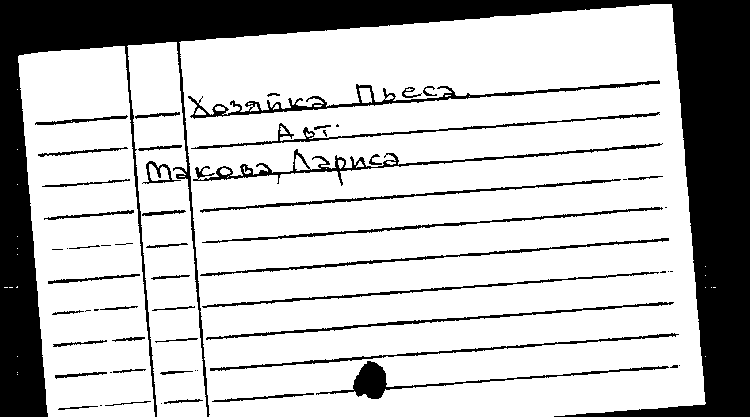 Хозяйка Пьеса.
Авт.
Макова, Лариса